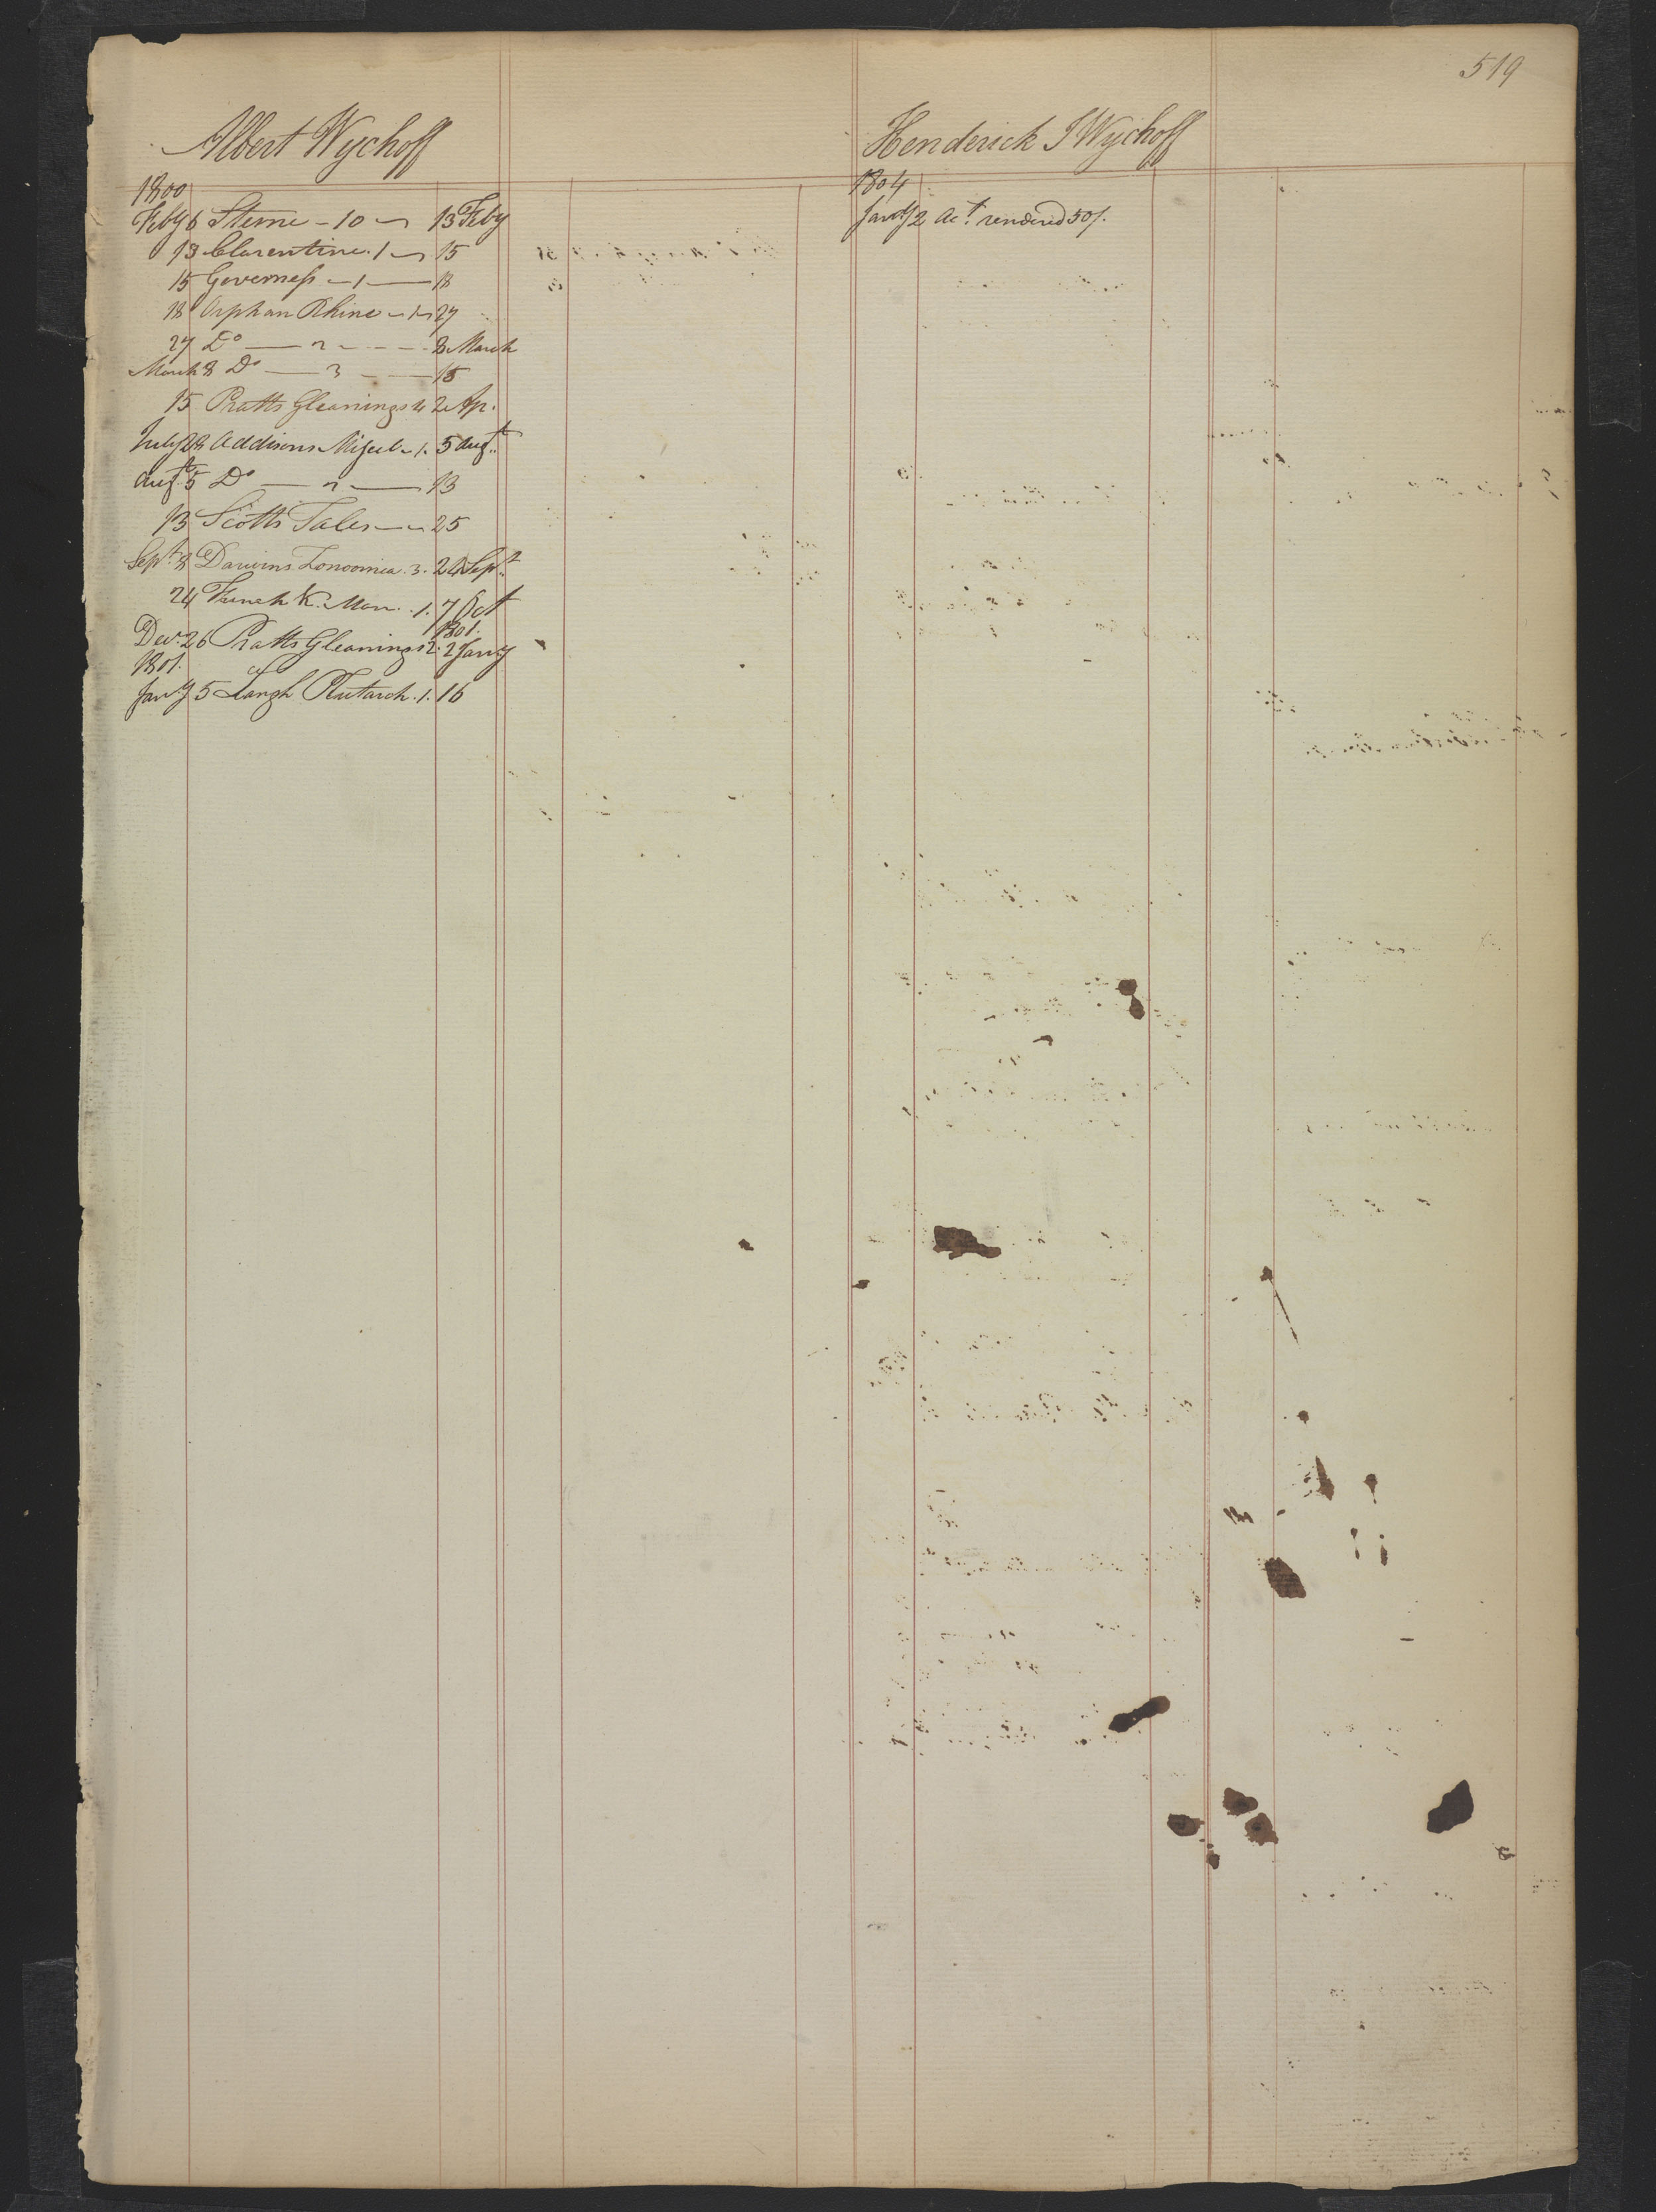 519
Albert Wyckoff
1800
Feby 6 Sterne - 10 - 13 Feby
13 Clarentine. 1 - 15
15 Governess - 1 - 18
18 Orphan Rhine - 1 - 27
27 Do - 2 - 8 March
March 8 Do - 3 - 15
15 Pratts Gleanings 4 2 Ap.
July 28 Addisons Miscel - 1. 5 Augt.
Augt. 5 Do - 2 - 13
13 Scotts Tales - 25
Sept. 8 Darwins Zonoomia. 3. 24 Sept.
24 French K. Mon. . 1. 7 Oct
1801.
Decr. 26 Pratts Gleanings 2. 2 Jany
1801.
Jany 5 Langh Plutarch. 1. 16
Henderick I Wyckoff
1804
Jany 2 Act. rendered 50/.